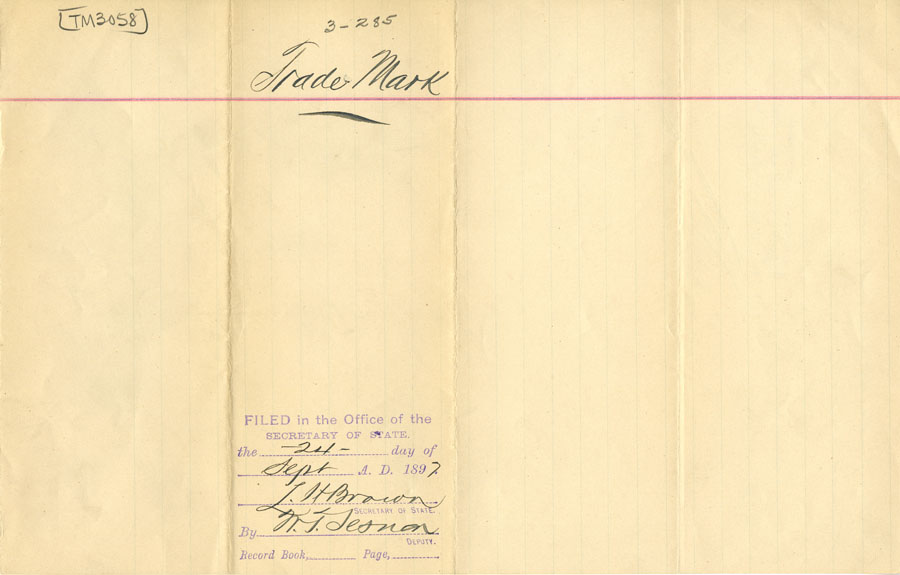 [TM3058]
3-285
Trade Mark
FILED in the Office of the
SECRETARY OF STATE.
the -24- day of
Sept A. D. 1897
L. H. Brown
SECRETARY OF STATE.
By W. T. Sesnon
DEPUTY.
Record Book, Page,